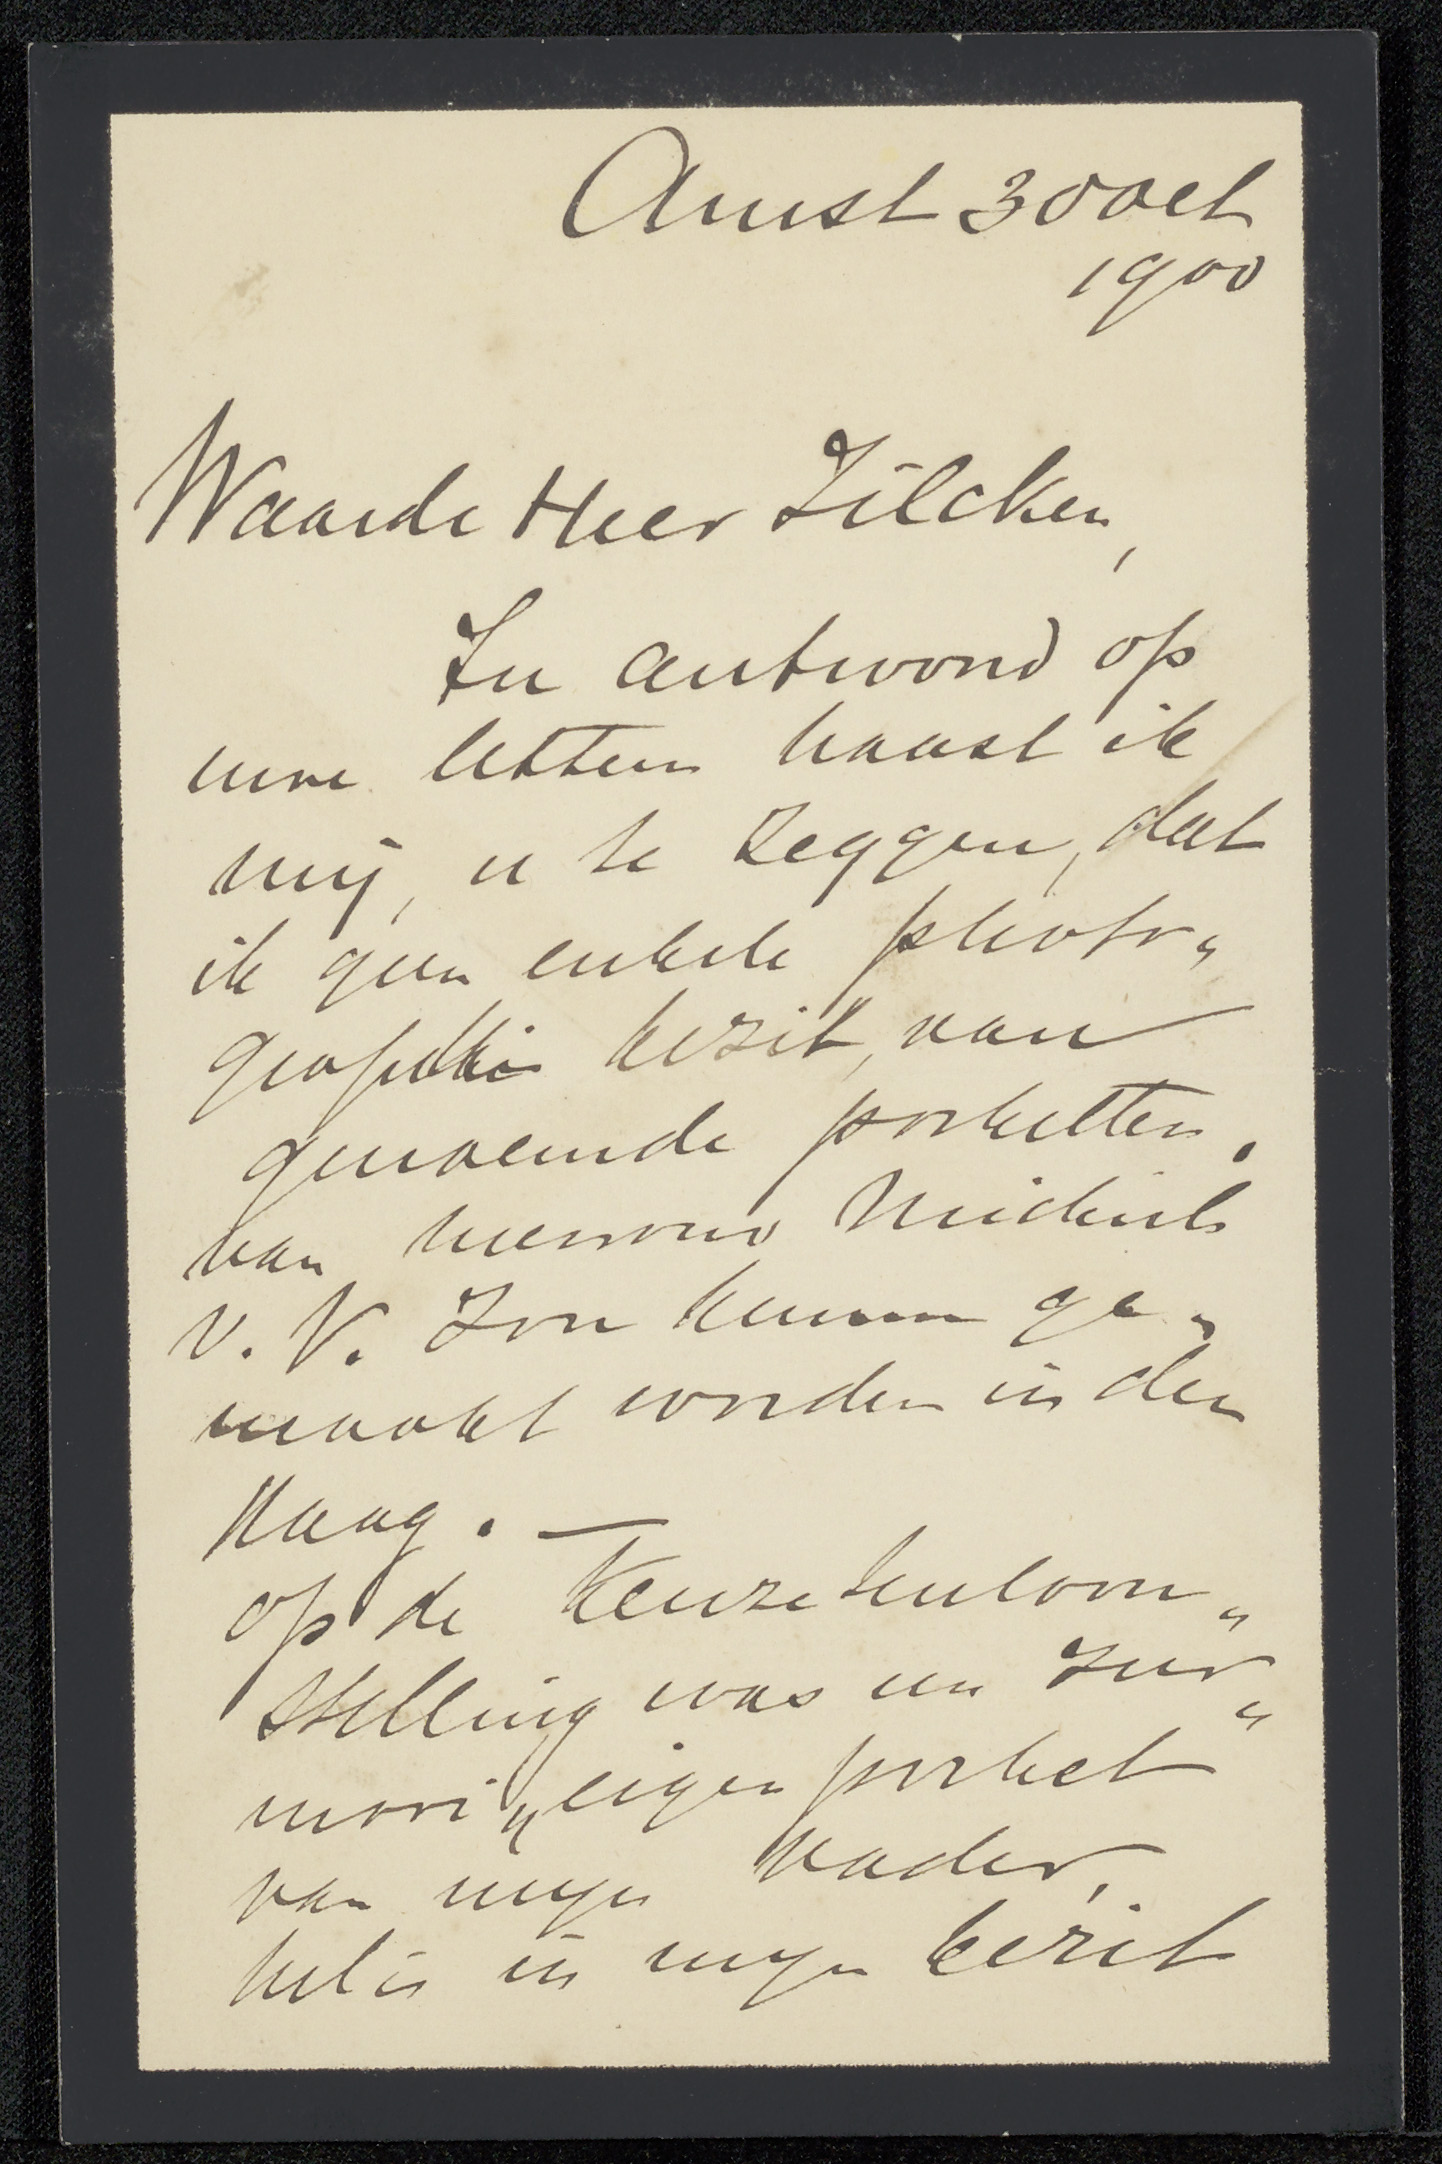 Amst 30 oct
1900
Waarde Heer Zilcken,
In antwoord op
uwe letteren haast ik
mij, u te zeggen, dat
ik geen enkele photo„
graphie bezit, van
genoemde portretten.
van mevrouw Michiels
v. V. Zou kunnen ge„
maakt worden in den
Haag. —
op de Keuze tentoon„
stelling was een
eigen portret
van mijn Vader,
het is in mijn bezit